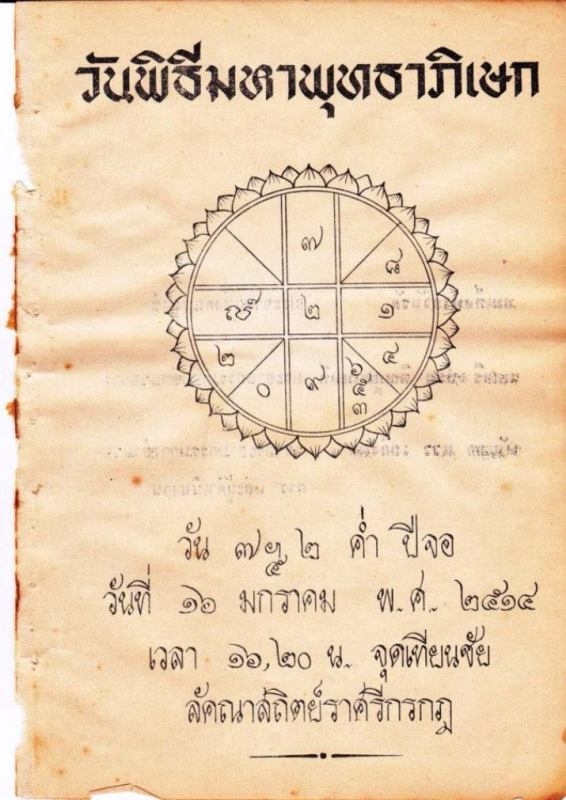 วันพิธีมหาพุทธาภิเษก
๗
๘
ส
๒
๑
๒
๐
๙
๖
๕
๓
๔
วัน ๗ ฯ ๕ ๒ ค่ำ ปีจอ
วันที่ ๑๖ มกราคม พ.ศ. ๒๕๑๔
เวลา ๑๖,๒๐ น. จุดเทียนชัย
ลัคณาสถิตย์ราศรีกรกฎ